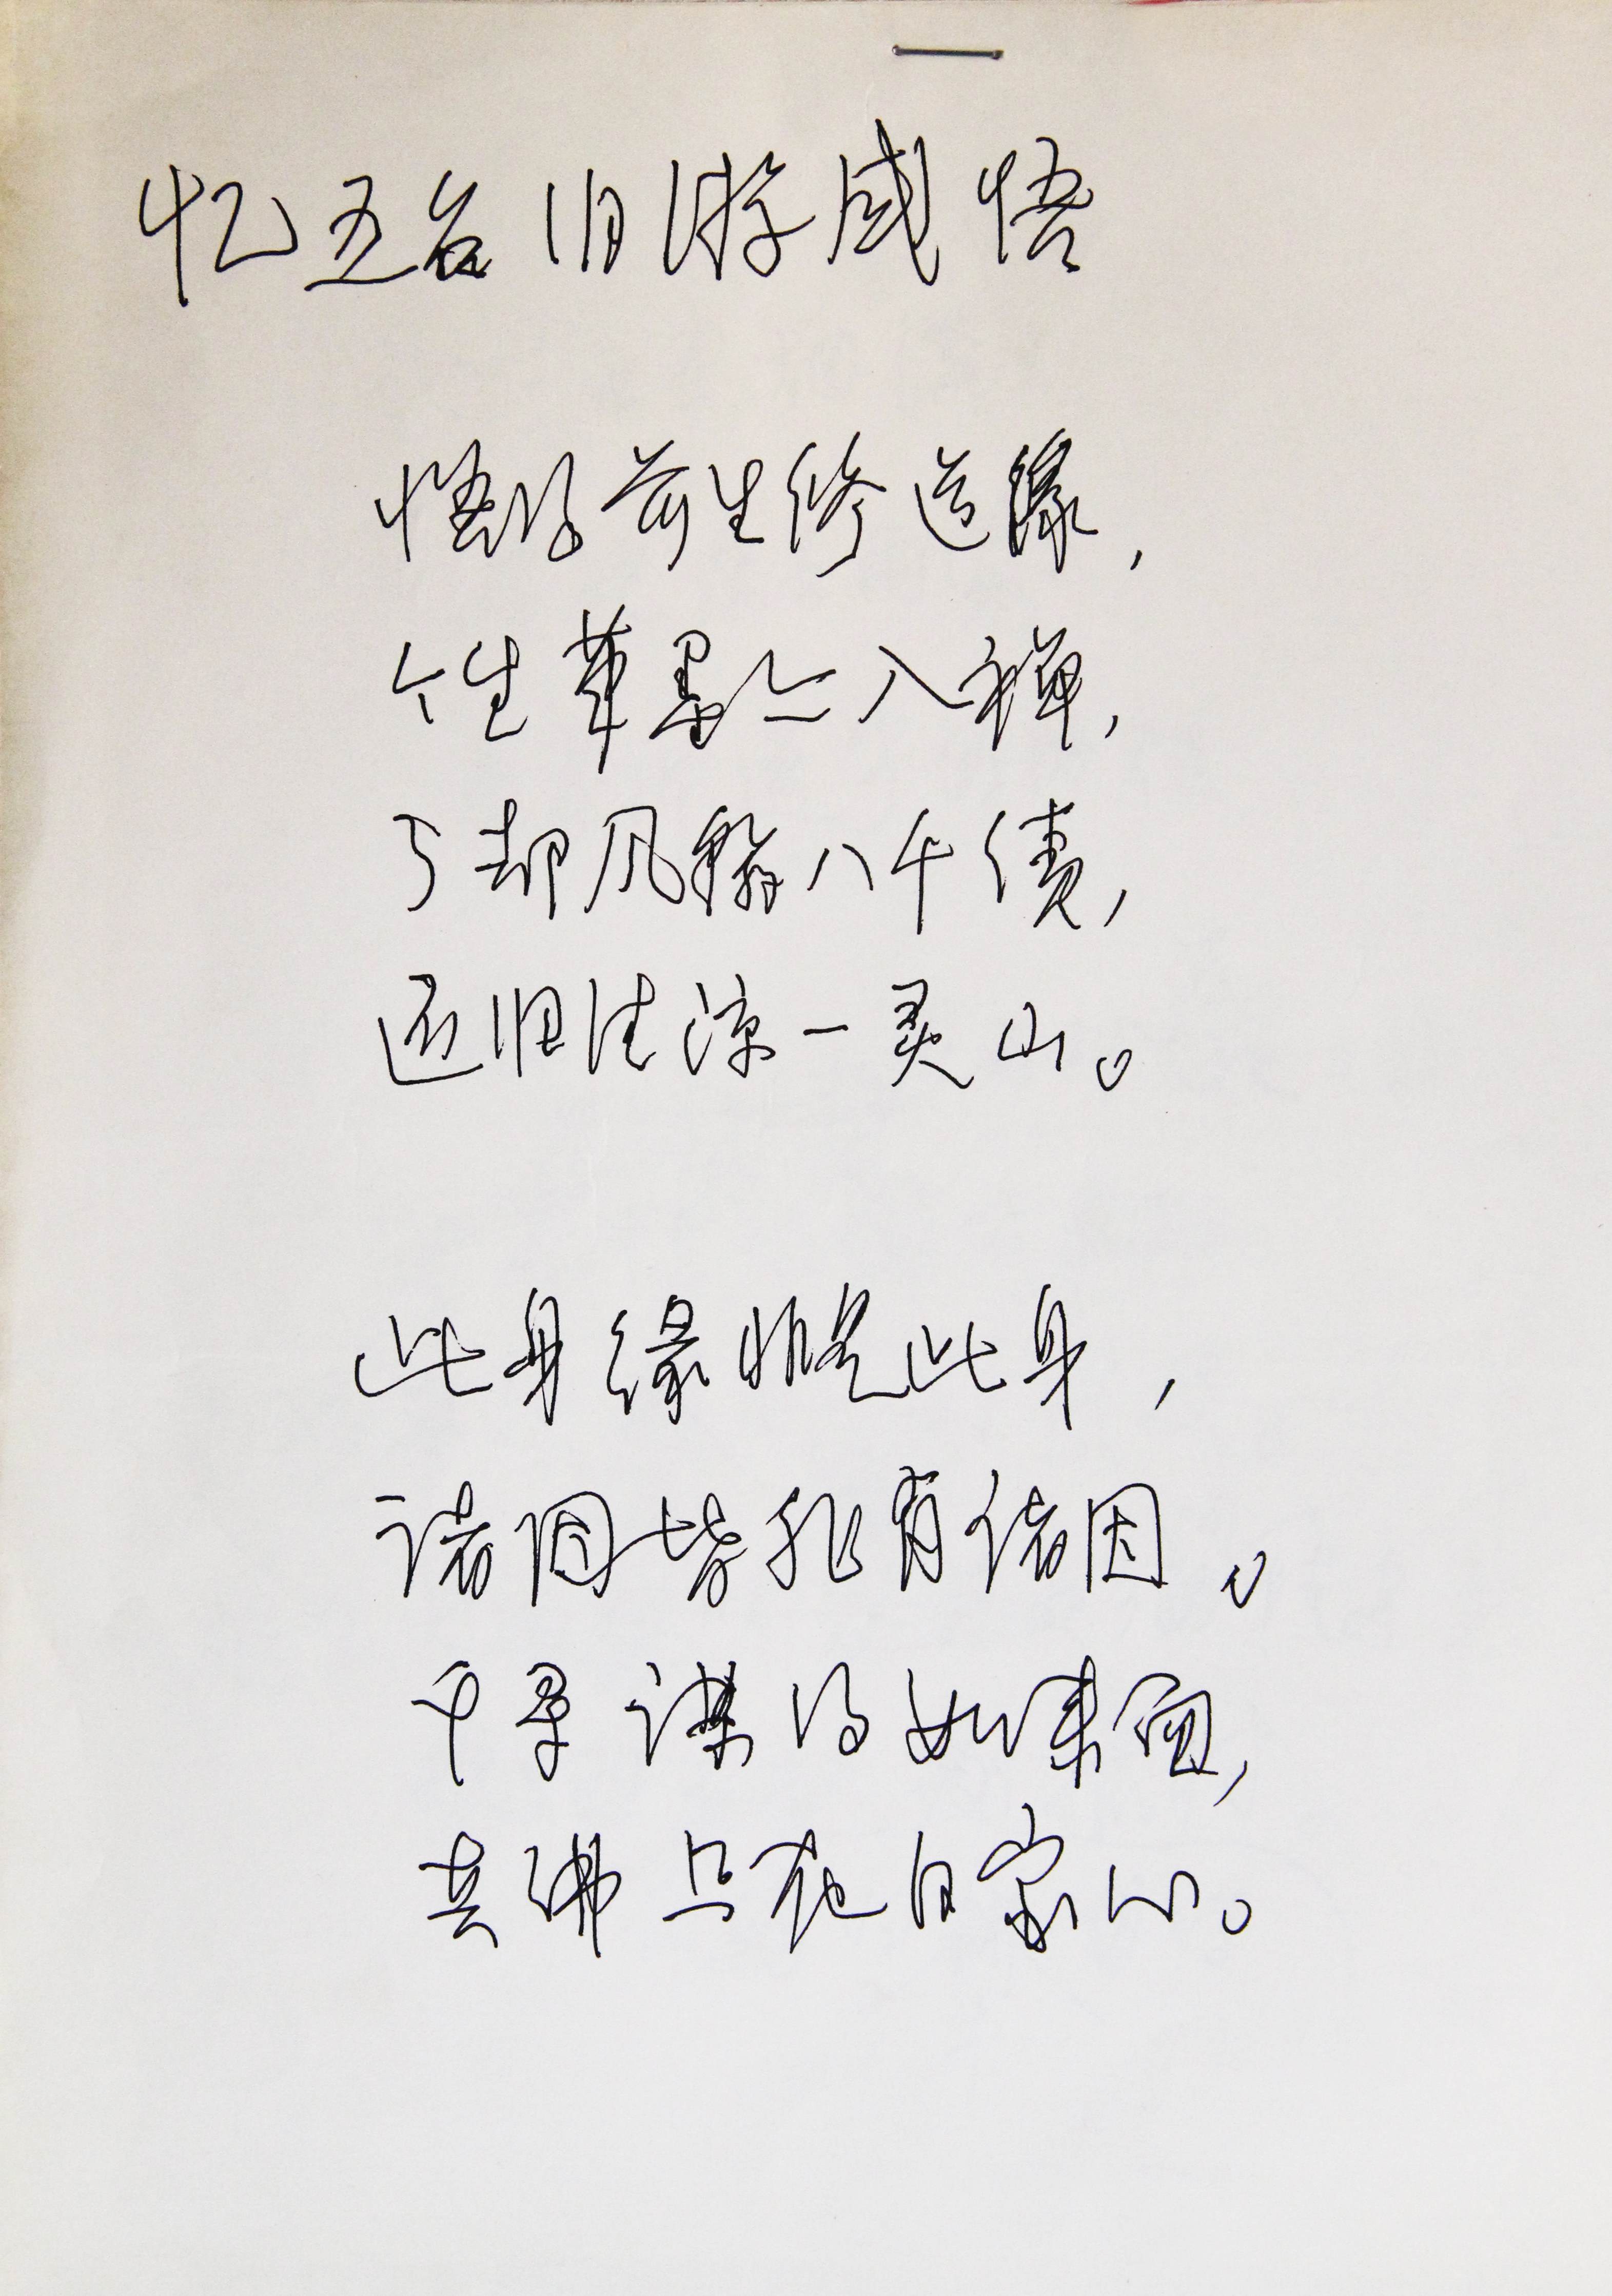 忆五台旧游感悟
悟得前生修道缘,
今生笔墨亦入禅,
了却风骚八千债,
还归清凉一灵山。
此身缘恨是此身,
诸因皆非有诸因。
千寻谋得如来面,
真佛只在自家心。